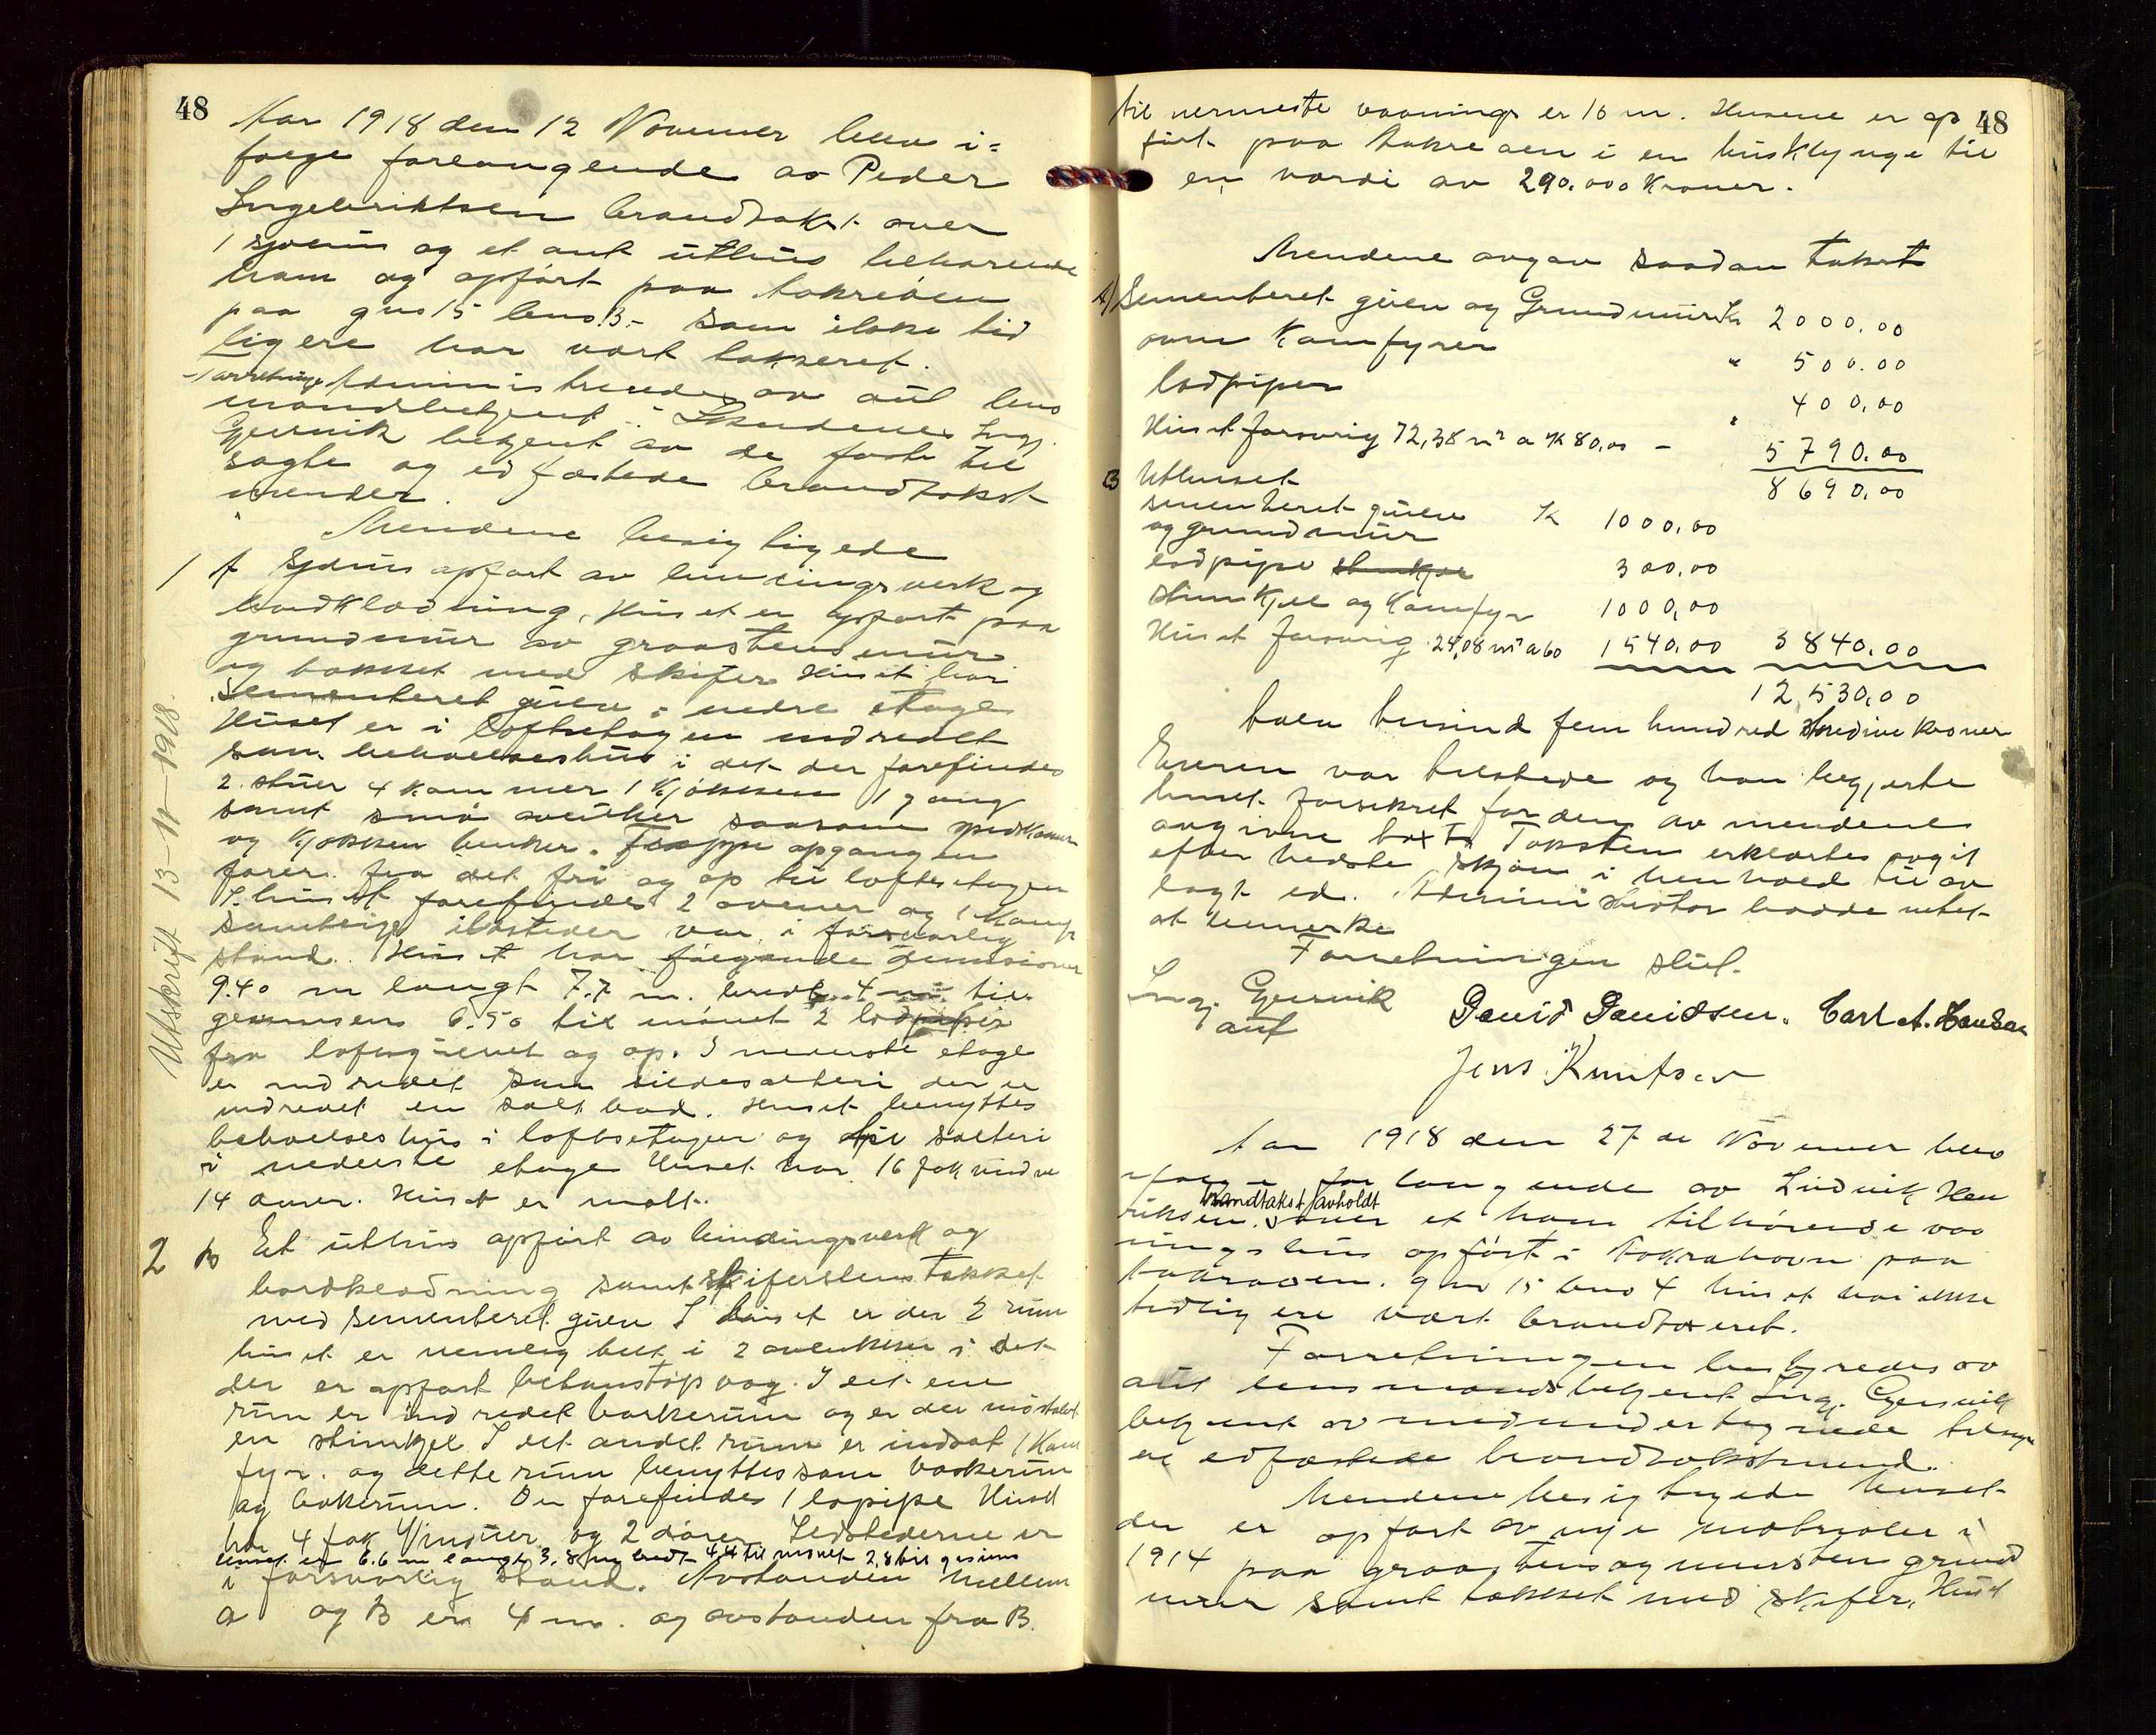 48
Aar 1918 den 12 November blev i=
følge forlangende av Peder
Ingebriktsen brandtakst over
1 sjøhus og et ant uthus tilhørende
ham og opført paa Aakreøen
paa gno 15 bno 3 - som ikke tid
ligere har vært takseret.
Forretninge Administreredes av aut lens
mandsbetjent i Skudenes Ingj.
Gjersvik betjent av de faste til
sagte og edfæstede brandtakst
mender.
Mendene besigtigede
1 A Sjøhus opført av bindingsverk og
bordklædning, Huset er opført paa
grundmur av graastensmur
og tækket med skifer Huset har
sementeret gulv i nedre etage
Huset er i loftsetagen indredet
som beboelseshus i det der forefindes
2 stuer 4 kammer 1 kjøkken 1 gang
samt små avlukker saasom spiskamer
og kjøkken benker. Trappe opgangen
fører fra det fri og op til loftsetagen
I huset forefindes 2 ovner og 1 Komf
samtlige ildsteder var i forsvarlig
stand. Huset har følgende dimensioner
9.40 m langt 7.7 m. bredt 4 m til
gesimsen 6.50 til mønet 2 lodpiper
fra loftsgulvet og op. I nederste etage
er indredet som sildesalteri der er
indredet en salt bod. Huset benyttes
beboelseshus i loftsetagen og til salteri
i nederste etage Huset har 16 fak vinduer
14 dører. Huset er malt.
2 B Et uthus opført av bindingsverk og
bordklædning samt skiferstens tækket
med sementeret gulv I huset er der 2 rum
huset er nemlig delt i 2 avlukker i det
der er opført betonstøp væg. I det ene
rum er indredet barkerum og er der indsat
en stimkjel I det andet rum er indsat 1 Kom
fyr. og dette rum benyttes som vaskerum
og bakerum. Der forefindes 1 lopipe Huset
har 4 fak Vinduer og 2 dører Ildstederne er
huset er 6.6 m langt 3.8 m bredt 4.4 til mønet 2,8 til gesims
i forsvarlig stand. Avstanden mellem
A og B er 4 m. og avstanden fra B.
Utskrift 13-11-1918.
48
til nermeste vaanings er 10 m. Husene er op
ført paa Aakreøen i en husklynge til
en værdi av 290.000 Kroner.
Mendene avgav saadan takst
A) Sementeret gulv og Grundmur Kr 2000.00
ovne Komfyrer " 500.00
lodpiper " 400,00
Huset forøvrig 72,38 m² a K 80,00 - 5790.00
8690,00
B Uthuset
sementeret gulv K 1000,00
og grundmur
lodpipe 300,00
stimkjel og Komfyr 1000,00
Huset forøvrig 24,08 m² a 60 1540,00 3840.00
12,530,00
tolv tusind fem hundred tredive kroner
Eieren var tilstede og han begjerte
huset forsikret for den av mendene
avgivne taxt Taksten erklærtes avgit
efter bedste skjøn i henhold til av
lagt ed. Administrator hadde intet
at bemerke
Forretningen slut.
Ing. Gjersvik
auf
David Davidsen. Carl A. Hansen
Jens Knutsen
Aar 1918 den 27 de November blev
ifølge forlangende av Ludvik Hen
brandtakst avholdt
riksen over et ham tilhørende vaa
ningshus opført i Aakrahavn paa
Aakraøen. gno 15 bno 4 huset har ikke
tidligere vært brandtaxeret.
Forretningen bestyredes av
aut lensmandsbetjent Ing. Gjersvik
betjent av medundertegnede tilsagte
og edfæstede brandtakstmend.
Mendene besigtigede huset
der er opført av nye matrialer i
1914 paa graastens og mursten grund
mur samt tækket med skifer, Huset